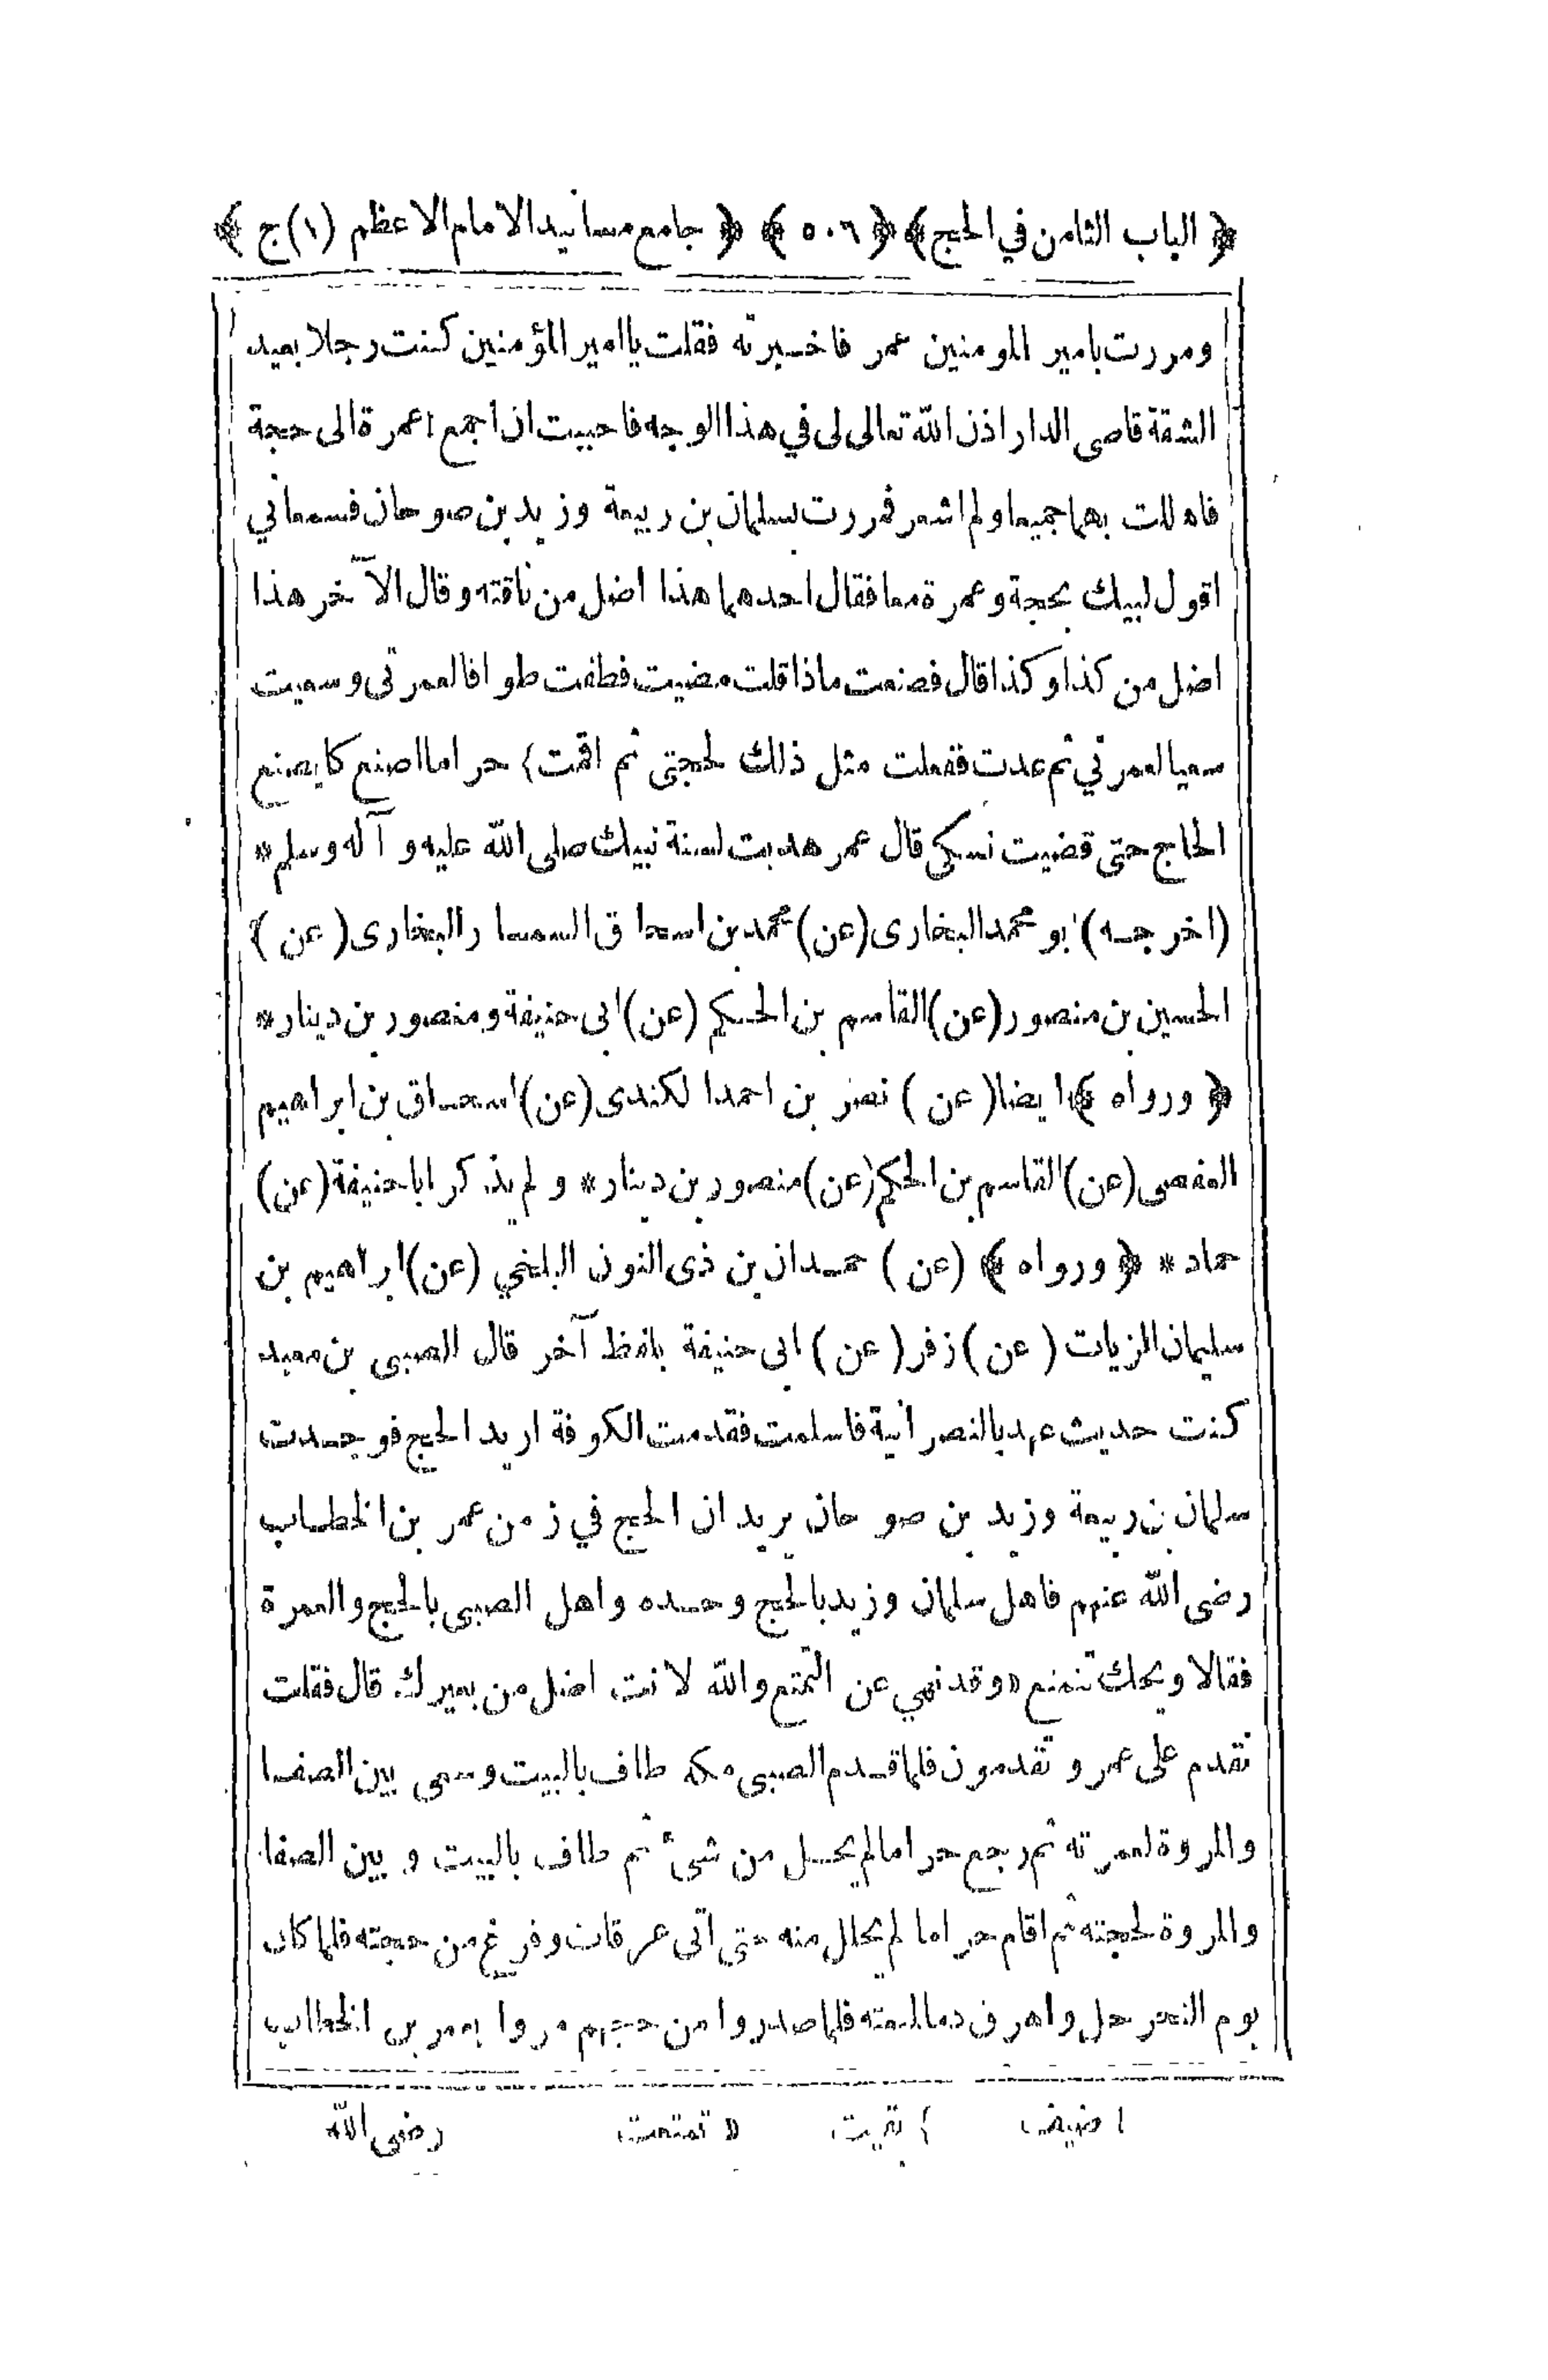 ﴿ الباب الثامن في الحج ﴾ ﴿ ٥٠٦ ﴾ ﴿ جامع مسانيد الامام الاعظم (١) ج ﴾
ومررت بامير المومنين عمر فاخبرته فقلت يا امير المؤمنين كنت رجلا بعيد
الشقة قاصى الدار اذن الله تعالى لى في هذا الوجه فاحببت ان اجمع ١ عمرة الى حجة
فاهللت بهما جميعا ولم اشعر فمررت بسلمان بن ربيعة وزيد بن صوحان فسمعاني
اقول لبيك بحجة وعمرة معا فقال احدهما هذا اضل من ناقته وقال الآخر هذا
اضل من كذا وكذا قال فصنعت ماذا قلت مضيت فطفت طوافا لعمرتى وسعيت
سعيا لعمرتي ثم عدت ففعلت مثل ذلك لحجتى ثم اقمت ٤ حراما اصنع كما يصنع
الحاج حتى قضيت نسكى قال عمر هديت لسنة نبيك صلى الله عليه وآله وسلم *
(اخرجه) ابو محمد البخارى (عن) محمد بن اسحاق السمسار البخارى (عن)
الحسين بن منصور (عن) القاسم بن الحكم (عن) ابى حنيفة ومنصور بن دينار *
﴿ ورواه ﴾ ايضا (عن) نصر بن احمد الكندى (عن) اسحاق بن ابراهيم
العفصى (عن) القاسم بن الحكم (عن) منصور بن دينار * ولم يذكر ابا حنيفة (عن)
حماد * ﴿ ورواه ﴾ (عن) حمدان بن ذى النون البلخي (عن) ابراهيم بن
سليمان الزيات (عن) زفر (عن) ابى حنيفة بلفظ آخر قال الصبى بن معبد
كنت حديث عهد بالنصرانية فاسلمت فقدمت الكوفة اريد الحج فوجدت
سلمان بن ربيعة وزيد بن صوحان يريدان الحج في زمن عمر بن الخطاب
رضى الله عنهم فاهل سلمان وزيد بالحج وحده واهل الصبى بالحج والعمرة
فقالا ويحك تمتع ٥ وقد نهي عن التمتع والله لانت اضل من بعيرك قال فقلت
نقدم على عمر وتقدمون فلما قدم الصبى مكه طاف بالبيت وسعى بين الصفا
والمروة لعمرته ثم رجع حراما لم يحل من شئ ثم طاف بالبيت و بين الصفا
والمروة لحجته ثم اقام حراما لم يحلل منه حتى اتى عرفات وفرغ من حجته فلما كان
يوم النحر حل واهرق دما لمتعته فلما صدروا من حجهم مروا بعمر بن الخطاب
١ ضيف ٤ بقيت ٥ تمتعت رضى الله